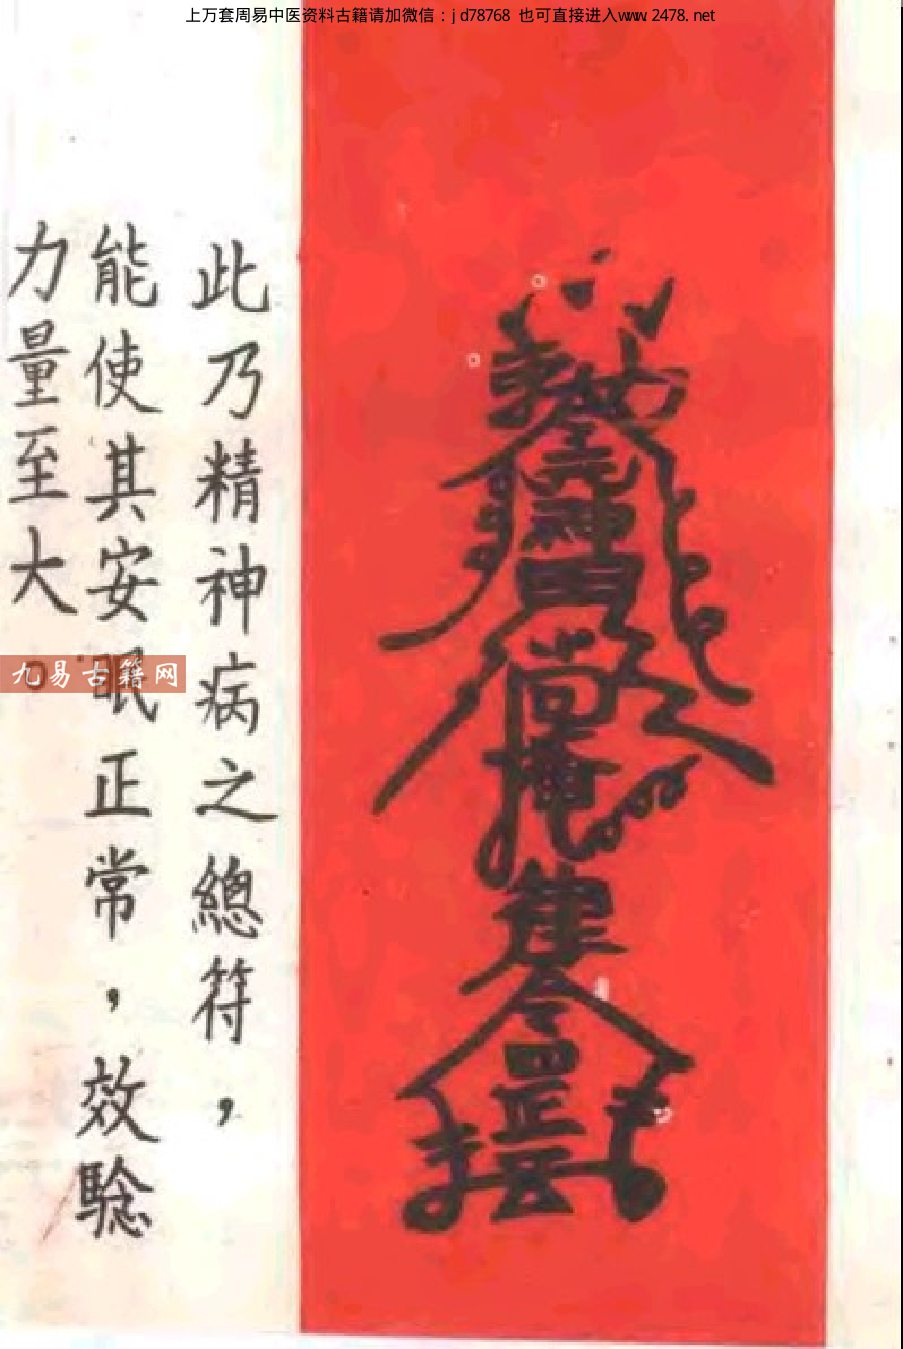 上万套周易中医资料古籍请加微信：jd78768 也可直接进入www.2478.net
此乃精神病之總符，
能使其安眠正常，效騐
力量至大。
九易古籍网
神
尚
掩
建
令
罡